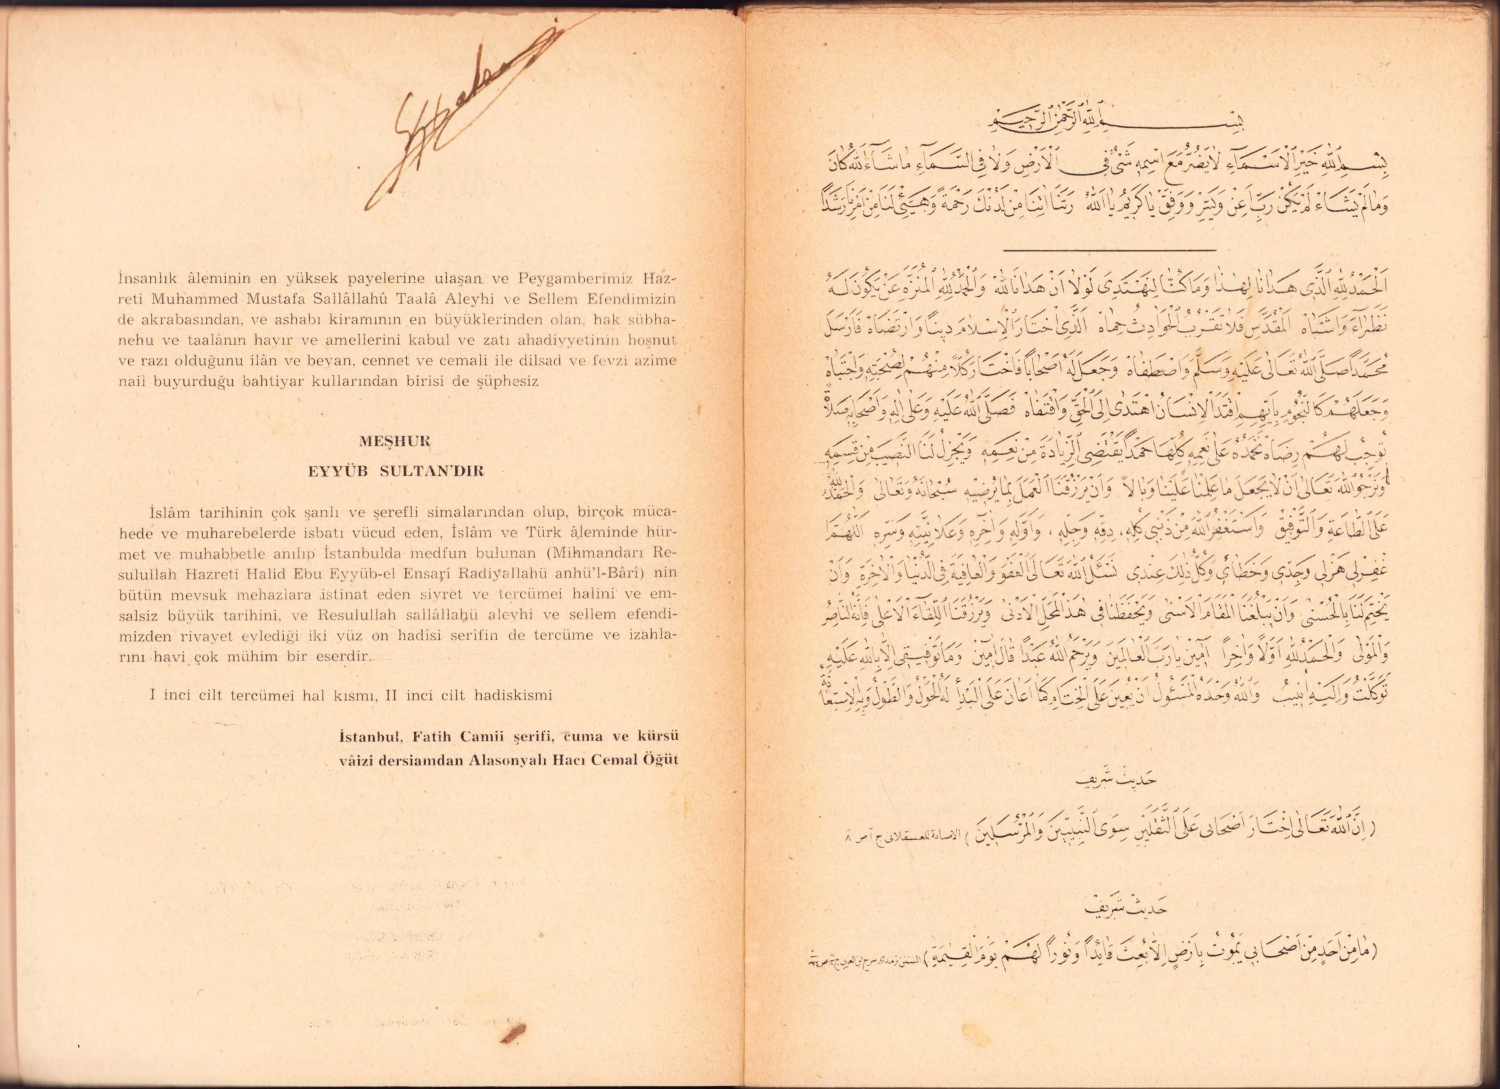 İnsanlık âleminin en yüksek payelerine ulaşan ve Peygamberimiz Haz-
reti Muhammed Mustafa Sallâllahû Taalâ Aleyhi ve Sellem Efendimizin
de akrabasından, ve ashabı kiramının en büyüklerinden olan, hak sübha-
nehu ve taalânın hayır ve amellerini kabul ve zatı ahadiyyetinin hoşnut
ve razı olduğunu ilân ve beyan, cennet ve cemali ile dilşad ve fevzi azime
nail buyurduğu bahtiyar kullarından birisi de şüphesiz
MEŞHUR
EYYÜB SULTAN'DIR
İslâm tarihinin çok şanlı ve şerefli simalarından olup, birçok müca-
hede ve muharebelerde isbatı vücud eden, İslâm ve Türk âleminde hür-
met ve muhabbetle anılıp İstanbulda medfun bulunan (Mihmandarı Re-
sulullah Hazreti Halid Ebu Eyyüb-el Ensarî Radiyallahü anhü'l-Bâri) nin
bütün mevsuk mehazlara istinat eden siyret ve tercümei halini ve em-
salsiz büyük tarihini, ve Resulullah sallâllahü aleyhi ve sellem efendi-
mizden rivayet eylediği iki yüz on hadisi şerifin de tercüme ve izahla-
rını havi çok mühim bir eserdir.
I inci cilt tercümei hal kısmı, II inci cilt hadiskismi
İstanbul, Fatih Camii şerifi, cuma ve kürsü
vâizi dersiamdan Alasonyalı Hacı Cemal Öğüt
بِسْمِ اللهِ الرَّحْمٰنِ الرَّحِيمِ
بِسْمِ اللهِ خَيْرِ الْاَسْمَاءِ لَا يَضُرُّ مَعَ اسْمِهِ شَئٌ فِى الْاَرْضِ وَلَا فِى السَّمَاءِ مَا شَاءَ اللهُ كَانَ
وَمَا لَمْ يَشَاءْ لَمْ يَكُنْ رَبِّ اَعِنْ وَيَسِّرْ وَوَفِّقْ يَا كَرِيمُ يَا اَللهُ رَبَّنَا اٰتِنَا مِنْ لَدُنْكَ رَحْمَةً وَهَيِّئْ لَنَا مِنْ اَمْرِنَا رَشَدًا
اَلْحَمْدُ لِلّٰهِ الَّذِى هَدَانَا لِهٰذَا وَمَا كُنَّا لِنَهْتَدِىَ لَوْلَا اَنْ هَدَانَا اللهُ وَالْحَمْدُ لِلّٰهِ الْمُنَزَّهِ عَنْ يَكُونَ لَهُ
نُظَرَاءَ وَاَشْبَاه الْمُقَدَّسِ فَلَا تَقْرُبُ الْحَوَادِثُ حِمَاهُ الَّذِى اخْتَارَ الْاِسْلَامَ دِينًا وَارْتَضَاهُ فَاَرْسَلَ
مُحَمَّدًا صَلَّى اللهُ تَعَالَى عَلَيْهِ وَسَلَّمَ وَاصْطَفَاهُ وَجَعَلَ لَهُ اَصْحَابًا فَاخْتَارَ كُلًّا مِنْهُمْ لِصُحْبَتِهِ وَاجْتَبَاهُ
وَجَعَلَهُمْ كَالنُّجُومِ بِاَيِّهِمُ اقْتَدَا الْاِنْسَانُ اهْتَدٰى اِلَى الْحَقِّ وَاقْتَفَاهُ فَصَلَّى اللهُ عَلَيْهِ وَعَلٰى اٰلِهِ وَاَصْحَابِهِ صَلَاةً
تُوجِبُ لَهُمْ رِضَاهُ نَحْمَدُهُ عَلٰى نِعَمِهِ كُلِّهَا حَمْدًا يَقْتَضِى الزِّيَادَةَ مِنْ نِعَمِهِ وَيُجْزِلُ لَنَا النَّصِيبَ مِنْ قِسَمِهِ
وَنَرْجُو اللهَ تَعَالٰى اَنْ لَا يَجْعَلَ مَا عَلِمْنَا عَلَيْنَا وَبَالًا وَاَنْ يَرْزُقَنَا الْعَمَلَ بِمَا يُرْضِيهِ سُبْحَانَهُ وَتَعَالٰى وَالْحَمْدُ لِلّٰهِ
عَلَى الطَّاعَةِ وَالتَّوْفِيقِ وَاَسْتَغْفِرُ اللهَ مِنْ ذَنْبِى كُلِّهِ، دِقِّهِ وَجِلِّهِ، وَاَوَّلِهِ وَاٰخِرِهِ وَعَلَانِيَّتِهِ وَسِرِّهِ اَللّٰهُمَّ
غْفِرْلِى هَزْلِى وَجِدِّى وَخَطَاىٰٔ وَكُلُّ ذٰلِكَ عِنْدِى نَسْئَلُ اللهَ تَعَالَى الْعَفْوَ وَالْعَافِيَةَ فِى الدُّنْيَا وَالْاٰخِرَةِ وَاَنْ
يَخْتِمَ لَنَا بِالْحُسْنٰى وَاَنْ يُبَلِّغَنَا الْمَقَامَ الْاَسْنٰى وَيَحْفَظَنَا فِى هٰذَ الْمَحَلِّ الْاَدْنٰى وَيَرْزُقَنَا اللِّقَاءَ الْاَعْلٰى فَاِنَّهُ النَّاصِرُ
وَالْمَوْلٰى وَالْحَمْدُ لِلّٰهِ اَوَّلًا وَاٰخِرًا اٰمِينَ يَا رَبَّ الْعَالَمِينَ وَيَرْحَمُ اللهُ عَبْدًا قَالَ اٰمِينَ وَمَا تَوْفِيقِى اِلَّا بِاللهِ عَلَيْهِ
تَوَكَّلْتُ وَاِلَيْهِ اُنِيبُ وَاللهُ وَحْدَهُ الْمَسْئُولُ اَنْ يُعِينَ عَلَى الْخِتَامِ كَمَا اَعَانَ عَلَى الْبَدْأِ لَهُ الْحَوْلُ وَالطَّوْلُ وَبِهِ الْاِسْتِعَانَةُ
حَدِيث شَرِيف
(اِنَّ اللهَ تَعَالَى اخْتَارَ اَصْحَابِى عَلَى الثَّقَلَيْنِ سِوَى النَّبِيِّينَ وَالْمُرْسَلِينَ) الاصابة للعسقلانى ج ١ ص ٨
حَدِيث شَرِيف
(مَا مِنْ اَحَدٍ مِنْ اَصْحَابِى يَمُوتُ بِاَرْضٍ اِلَّا بُعِثَ قَائِدًا وَنُورًا لَهُمْ يَوْمَ الْقِيٰمَةِ)